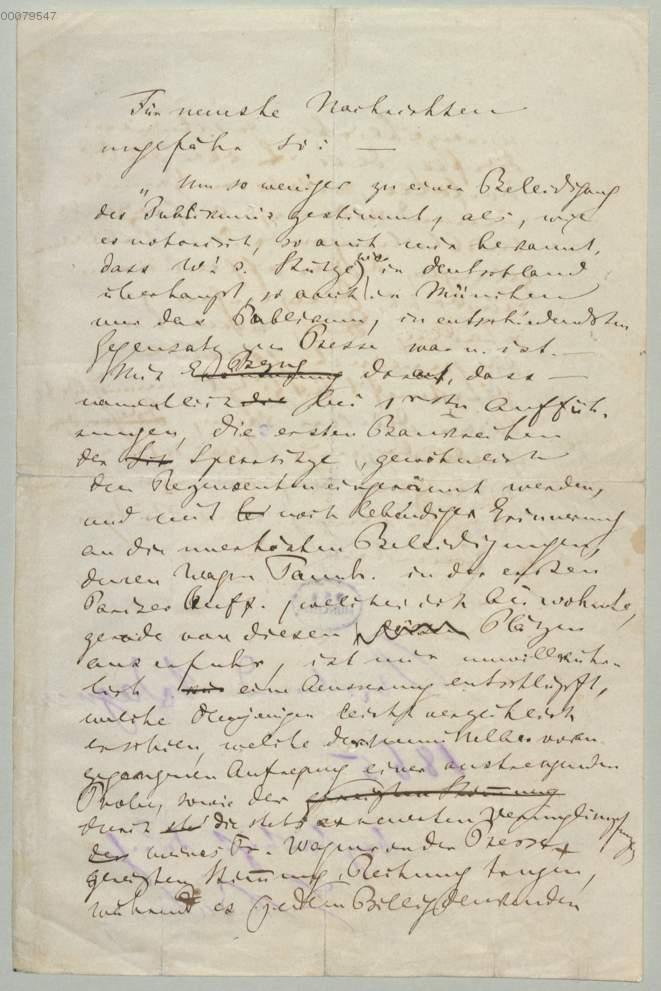 00079547
Für neueste Nachrichten
ungefähr so: —
„Um so weniger zu einer Beleidigung
des Publikums gestimmt, als, wie
es notorisch, so auch mir bekannt,
dass W's s. Stütze, wie in Deutschland
überhaupt, so auch in München
nur das Publicum, in entschiedendsten
Gegensatz zur Presse war u. ist. —
Mit Bezug darauf, dass —
namentlich bei ersten Auffüh-
rungen, die ersten Bankreihen
der Sperrsitze, gewöhnlich
den Regensenten eingeräumt werden,
und mit noch lebendiger Erinnerung
an die unerhörten Beleidigungen,
deren Wagn Tannh. in der ersten
Pariser Auff. welcher ich beiwohnte,
gerade von diesen Plätzen
aus erfuhr, ist mir unwillkühr-
lich eine Aeusserung entschlüpft,
welche denjenigen leicht verzeihlich
erschien, welche der unmittelbar voran-
gegangenen Aufregung einer anstrengenden
Probe, sowie der gereizten Stimmung
durch die stets erneuerten Verunglimpfungen
meines Fr. Wagner in der Presse
gereizten Stimmung Rechnung tragen,
während es jedem Billigdenkenden